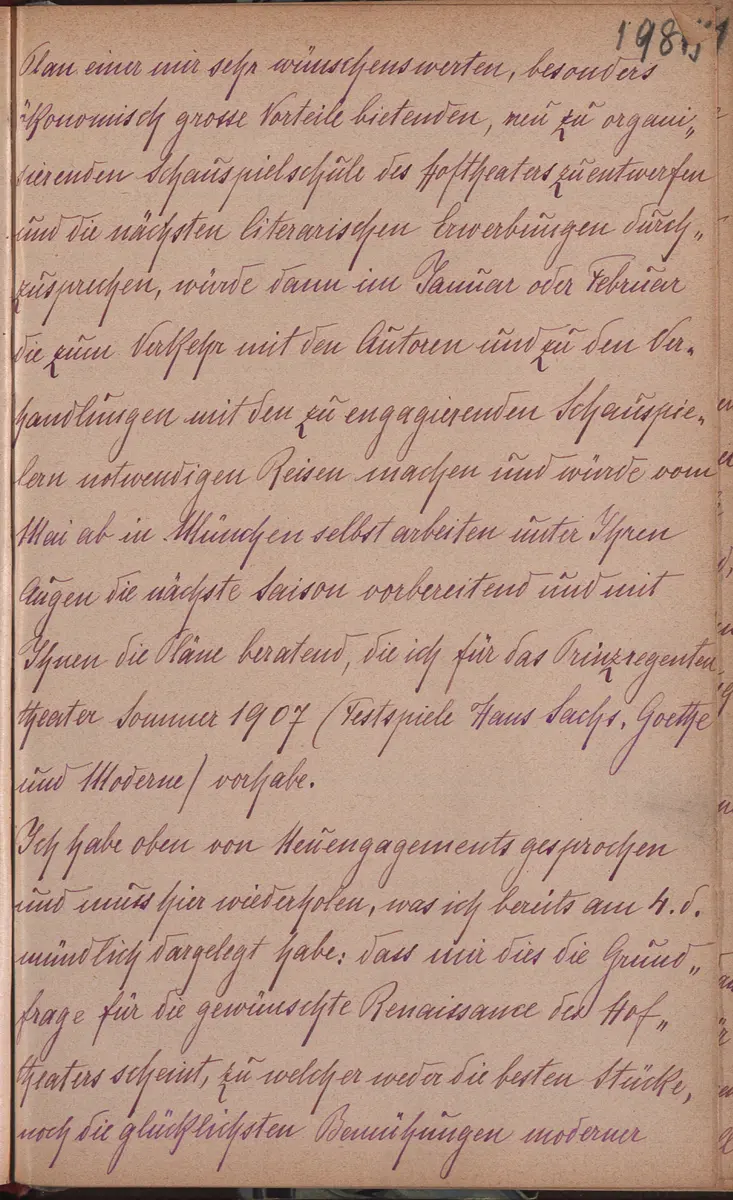 198
Plan einer mir sehr wünschenswerten, besonders
ökonomisch grosse Vorteile bietenden, neu zu organi„
sierenden Schauspielschule des Hoftheaters zu entwerfen
und die nächsten literarischen Erwerbungen durch„
zusprechen, würde dann im Januar oder Februar
die zum Verkehr mit den Autoren und zu den Ver„
handlungen mit den zu engagierenden Schauspie„
lern notwendigen Reisen machen und würde vom
Mai ab in München selbst arbeiten unter Ihren
Augen die nächste Saison vorbereitend und mit
Ihnen die Pläne beratend, die ich für das Prinzregenten
theater Sommer 1907 (Festspiele Hans Sachs, Goethe
und Moderne) vorhabe.
Ich habe oben von Neuengagements gesprochen
und muss hier wiederholen, was ich bereits am 4. d.
mündlich dargelegt habe: dass mir dies die Grund„
frage für die gewünschte Renaissance des Hof„
theaters scheint, zu welcher weder die besten Stücke,
noch die glücklichsten Bemühungen moderner